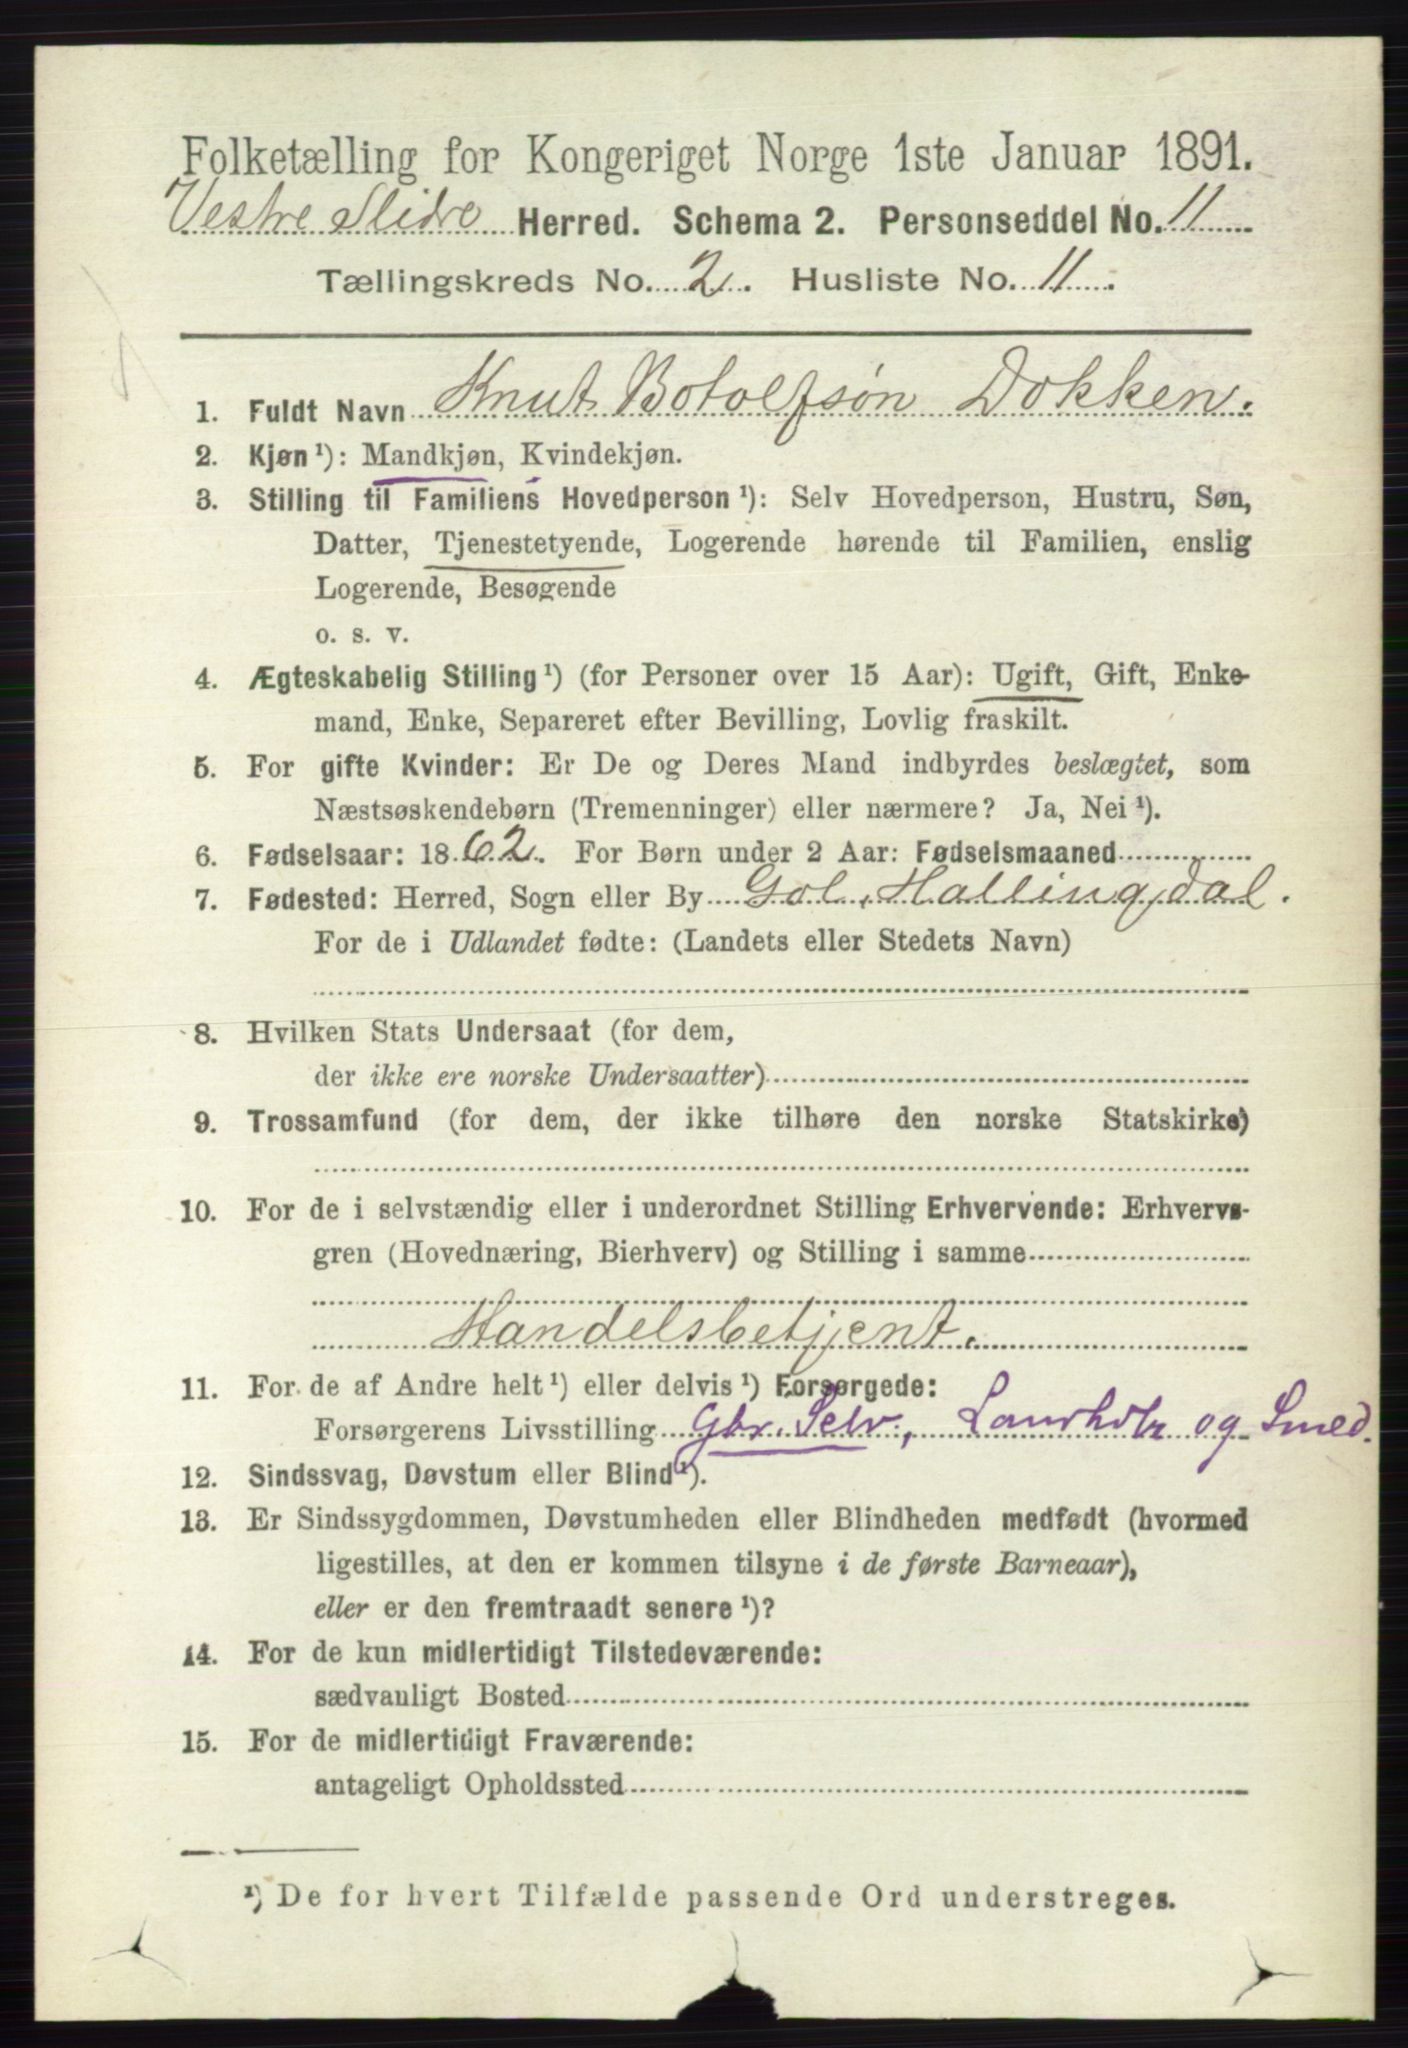 Folketælling for Kongeriget Norge 1ste Januar 1891.
Vestre Slidre Herred. Schema 2. Personseddel No. 11
Tællingskreds No. 2. Husliste No. 11.
1. Fuldt Navn Knut Botolfsøn Dokken.
2. Kjøn ¹): Mandkjøn, Kvindekjøn.
3. Stilling til Familiens Hovedperson ¹): Selv Hovedperson, Hustru, Søn,
Datter, Tjenestetyende, Logerende hørende til Familien, enslig
Logerende, Besøgende
o. s. v.
4. Ægteskabelig Stilling ¹) (for Personer over 15 Aar): Ugift, Gift, Enke-
mand, Enke, Separeret efter Bevilling, Lovlig fraskilt.
5. For gifte Kvinder: Er De og Deres Mand indbyrdes beslægtet, som
Næstsøskendebørn (Tremenninger) eller nærmere? Ja, Nei ¹).
6. Fødselsaar: 1862. For Børn under 2 Aar: Fødselsmaaned
7. Fødested: Herred, Sogn eller By Gol, Hallingdal.
For de i Udlandet fødte: (Landets eller Stedets Navn)
8. Hvilken Stats Undersaat (for dem,
der ikke ere norske Undersaatter)
9. Trossamfund (for dem, der ikke tilhøre den norske Statskirke)
10. For de i selvstændig eller i underordnet Stilling Erhvervende: Erhvervs-
gren (Hovednæring, Bierhverv) og Stilling i samme
Handelsbetjent.
11. For de af Andre helt ¹) eller delvis ¹) Forsørgede:
Forsørgerens Livsstilling Gbr. Selv, og Smed.
12. Sindssvag, Døvstum eller Blind ¹).
13. Er Sindssygdommen, Døvstumheden eller Blindheden medfødt (hvormed
ligestilles, at den er kommen tilsyne i de første Barneaar),
eller er den fremtraadt senere ¹)?
14. For de kun midlertidigt Tilstedeværende:
sædvanligt Bosted
15. For de midlertidigt Fraværende:
antageligt Opholdssted
¹) De for hvert Tilfælde passende Ord understreges.